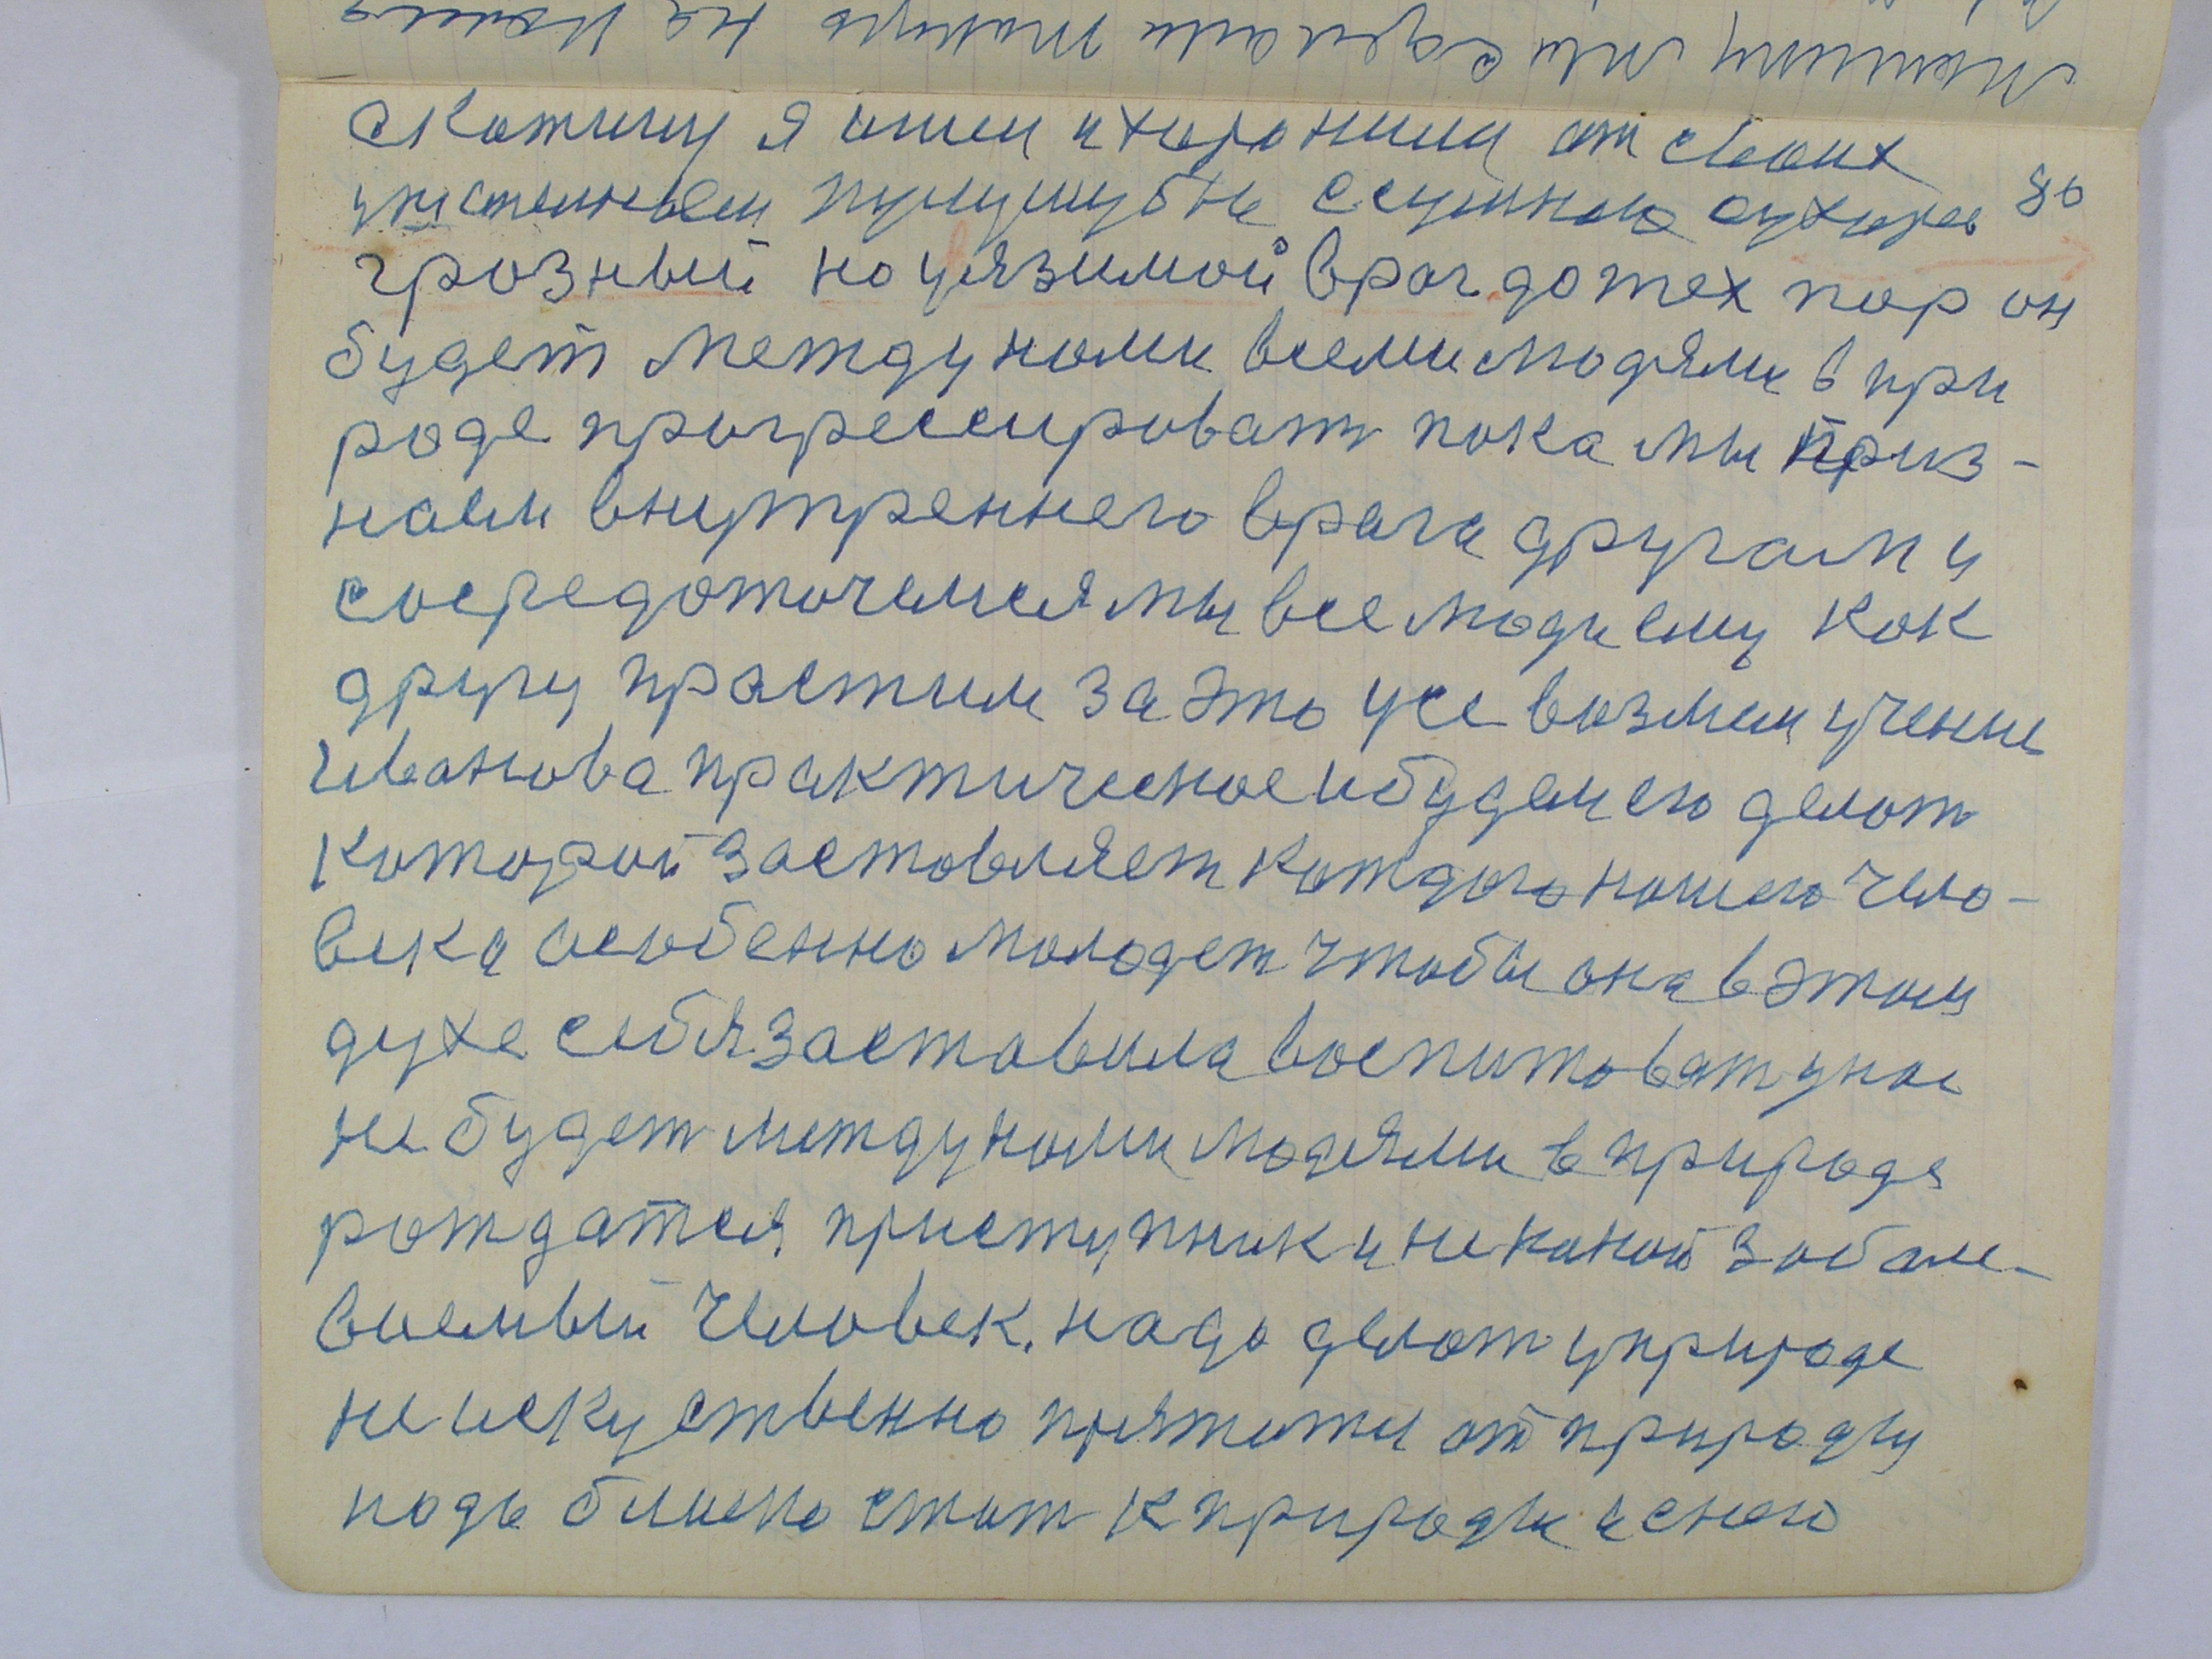 скотину я
от своих
80
грозный но уязимой враг до тех пор он
будет между нами всеми людями в при
роде прогрессироват пока мы приз-
наем внутреннего врага другам и
сосредоточемся мы все люди ему как
другу простим за это усе возмем учение
Иванова практическое и будем его делат
которой заставляет каждого нашего чело-
века особенно молодеж чтобы она в этом
духе себя заставила воспитоват у нас
не будет между нами людями в природе
рождатся приступник и не какой забале-
ваемый человек. надо делат у природе
не искуственно от природы
надо стат к природе и с нею